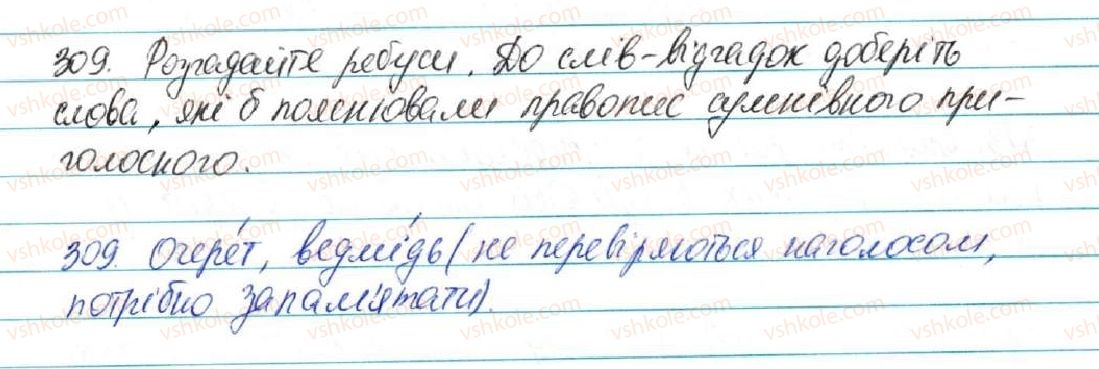 309. Розгадайте ребуси. До слів-відгадок доберіть
слова, які б пояснювали правопис сумнівного при-
голосного.
309. Очере́т, ведмі́дь (не перевіряються наголосом,
потрібно запам'ятати).